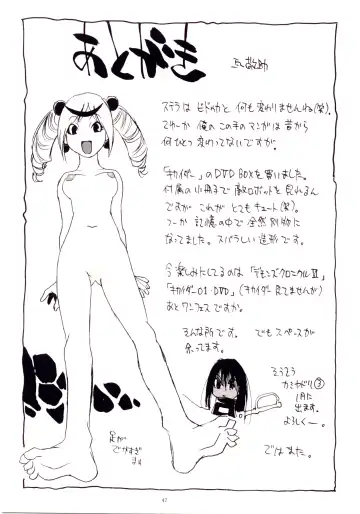 あとがき
瓦敬助
ステラは ヒドゥカと 何も変わりませんね(笑)。
てゆーか 俺の この手の マンガは 昔から
何ひとつ 変わってないですが。
「キカイダー」の DVD BOXを 買いました。
付属の 小冊子で 敵ロボットを 見れるん
ですが これが とてもキュート(笑)。
つーか 記憶の中で 全然 別物に
なってました。スバラしい 造形です。
今楽しみにしてるのは 「デモンズクロニクルⅡ」
「キカイダー01・DVD」(キカイダー 見てませんが)
あと ワンフェスですか。
そんな所です。 でも スペースが
余ってます。
そうそう
カミヤドリ③
1月に
出ます。
よろしくー。
足が
でかすぎ
ます
ではまた。
47